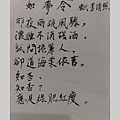 如夢令 宋 李清照
昨夜雨疏風驟，
濃睡不消殘酒。
試問捲簾人，
卻道海棠依舊。
知否？
知否？
應是綠肥紅瘦。